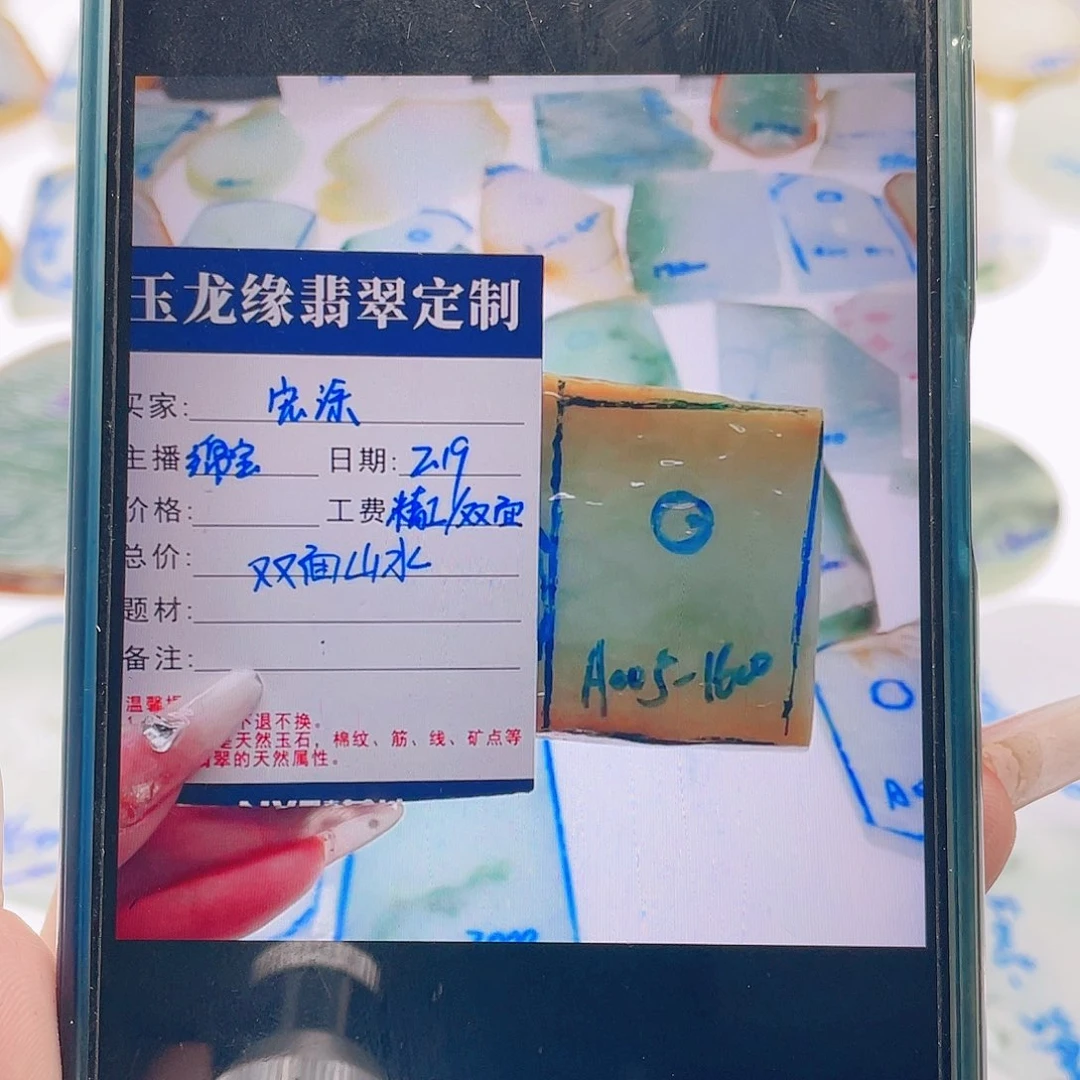 玉龙缘翡翠定制
买家: 宏涂
主播 绵宝 日期: 2.19
价格: 工费 精工/双面
总价: 双面山水
题材:
备注:
温馨
下退不换。
天然玉石，棉纹、筋、线、矿点等
翠的天然属性。
A005-1600